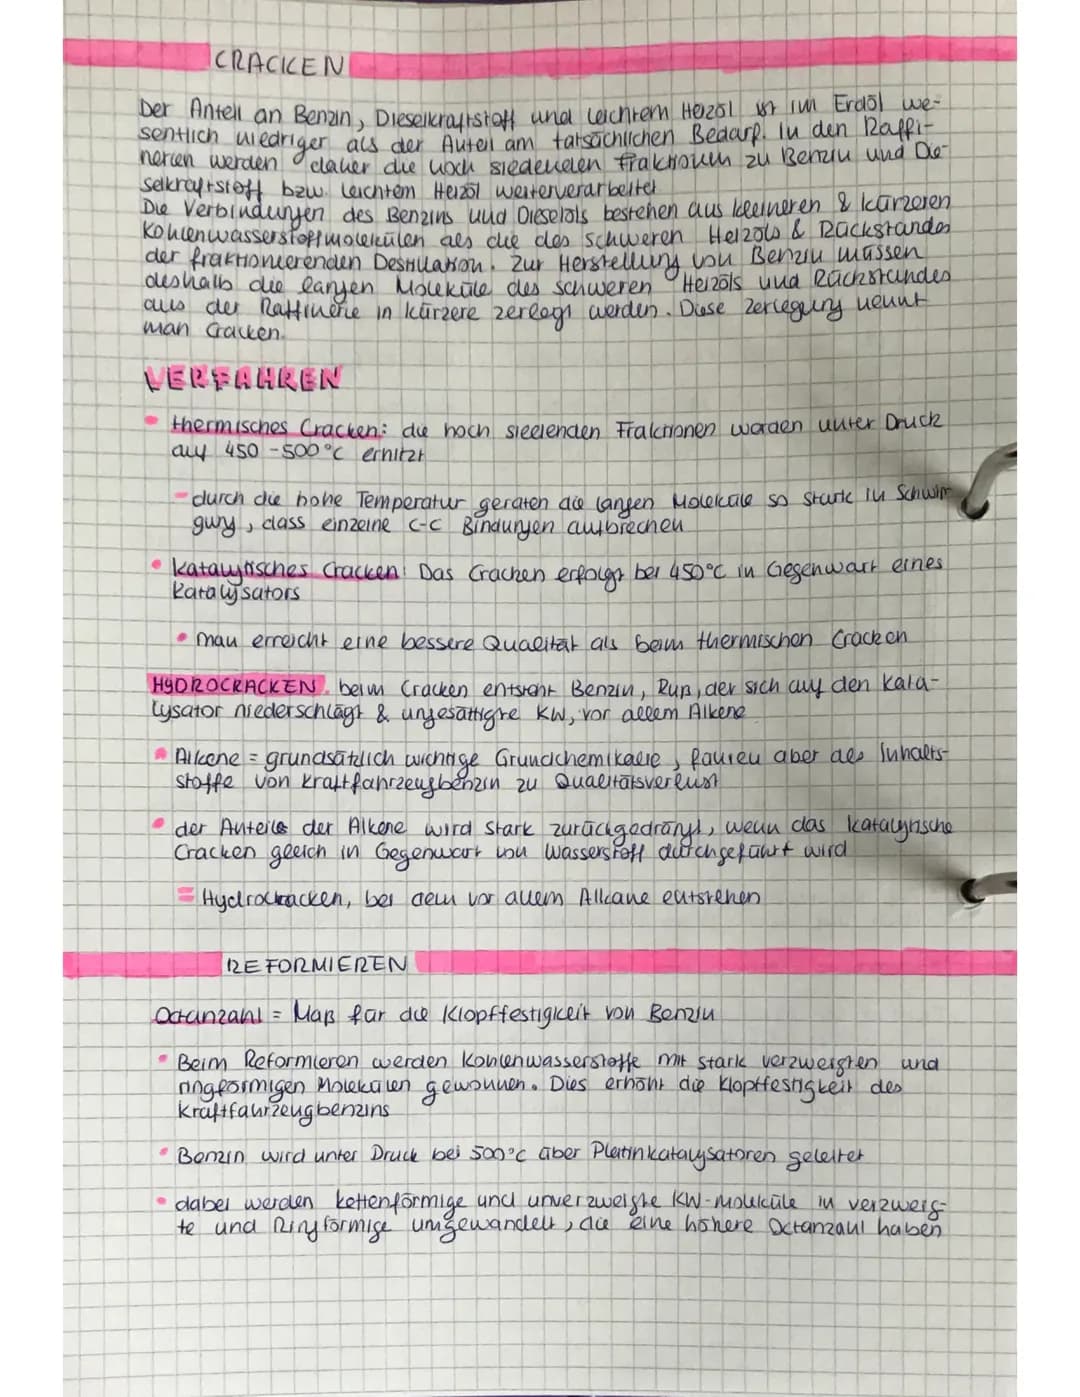 CRACKEN
Der Anteil an Benzin, Dieselkraftstoff und leichtem Heizöl ist im Erdöl we-
sentlich niedriger als der Anteil am tatsächlichen Bedarf. In den Raffi-
nerien werden daher die hoch siedenden Fraktionen zu Benzin und Die-
selkraftstoff bzw. leichtem Heizöl weiterverarbeitet
Die Verbindungen des Benzins und Dieselöls bestehen aus kleineren & kürzeren
Kohlenwasserstoffmolekülen als die des schweren Heizöls & Rückstandes
der fraktionierenden Destillation. Zur Herstellung von Benzin müssen
deshalb die langen Moleküle des schweren Heizöls und Rückstandes
aus der Raffinerie in kürzere zerlegt werden. Diese Zerlegung nennt
man Cracken.
VERFAHREN
• thermisches Cracken: die hoch siedenden Fraktionen werden unter Druck
auf 450-500°C erhitzt
- durch die hohe Temperatur geraten die langen Moleküle so stark in Schwin
gung, dass einzelne C-C Bindungen aufbrechen
• katalytisches Cracken: Das Cracken erfolgt bei 450°C in Gegenwart eines
Katalysators
• man erreicht eine bessere Qualität als beim thermischen Cracken
HYDROCRACKEN: beim Cracken entsteht Benzin, Ruß, der sich auf den Kata-
lysator niederschlägt & ungesättigte KW, vor allem Alkene
• Alkene = grundsätzlich wichtige Grundchemikalie, führen aber als Inhalts-
stoffe von Kraftfahrzeugbenzin zu Qualitätsverlust
• der Anteile der Alkene wird stark zurückgedrängt, wenn das katalytische
Cracken gleich in Gegenwart von Wasserstoff durchgeführt wird
= Hydrocracken, bei dem vor allem Alkane entstehen
REFORMIEREN
Octanzahl = Maß für die Klopffestigkeit von Benzin
• Beim Reformieren werden Kohlenwasserstoffe mit stark verzweigten und
ringförmigen Molekülen gewonnen. Dies erhöht die Klopffestigkeit des
Kraftfahrzeugbenzins
• Benzin wird unter Druck bei 500°C über Platinkatalysatoren geleitet
• dabei werden kettenförmige und unverzweigte KW-Moleküle in verzweig-
te und Ringförmige umgewandelt, die eine höhere Octanzahl haben